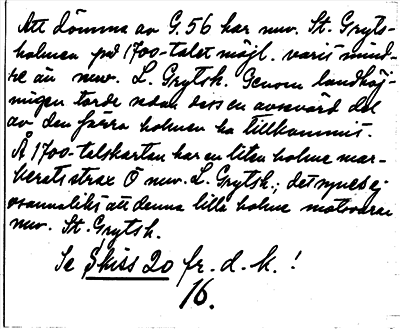 Att dömma av G.56 har nuv. St. Gryts-
holmen på 1700-talet möjl. varit mind-
re än nuv. L. Grytsh. Genom landhöj-
ningen torde sedan dess en avsevärd del
av den förra holmen ha tillkommit.
Å 1700-talskartan har en liten holme mar-
kerats strax Ö nuv. L. Grytsk.; det synes ej
osannolikt att denna lilla holme motsvarar
nuv. St. Grytsh.
Se Skiss 20 fr. d. k. !
16.